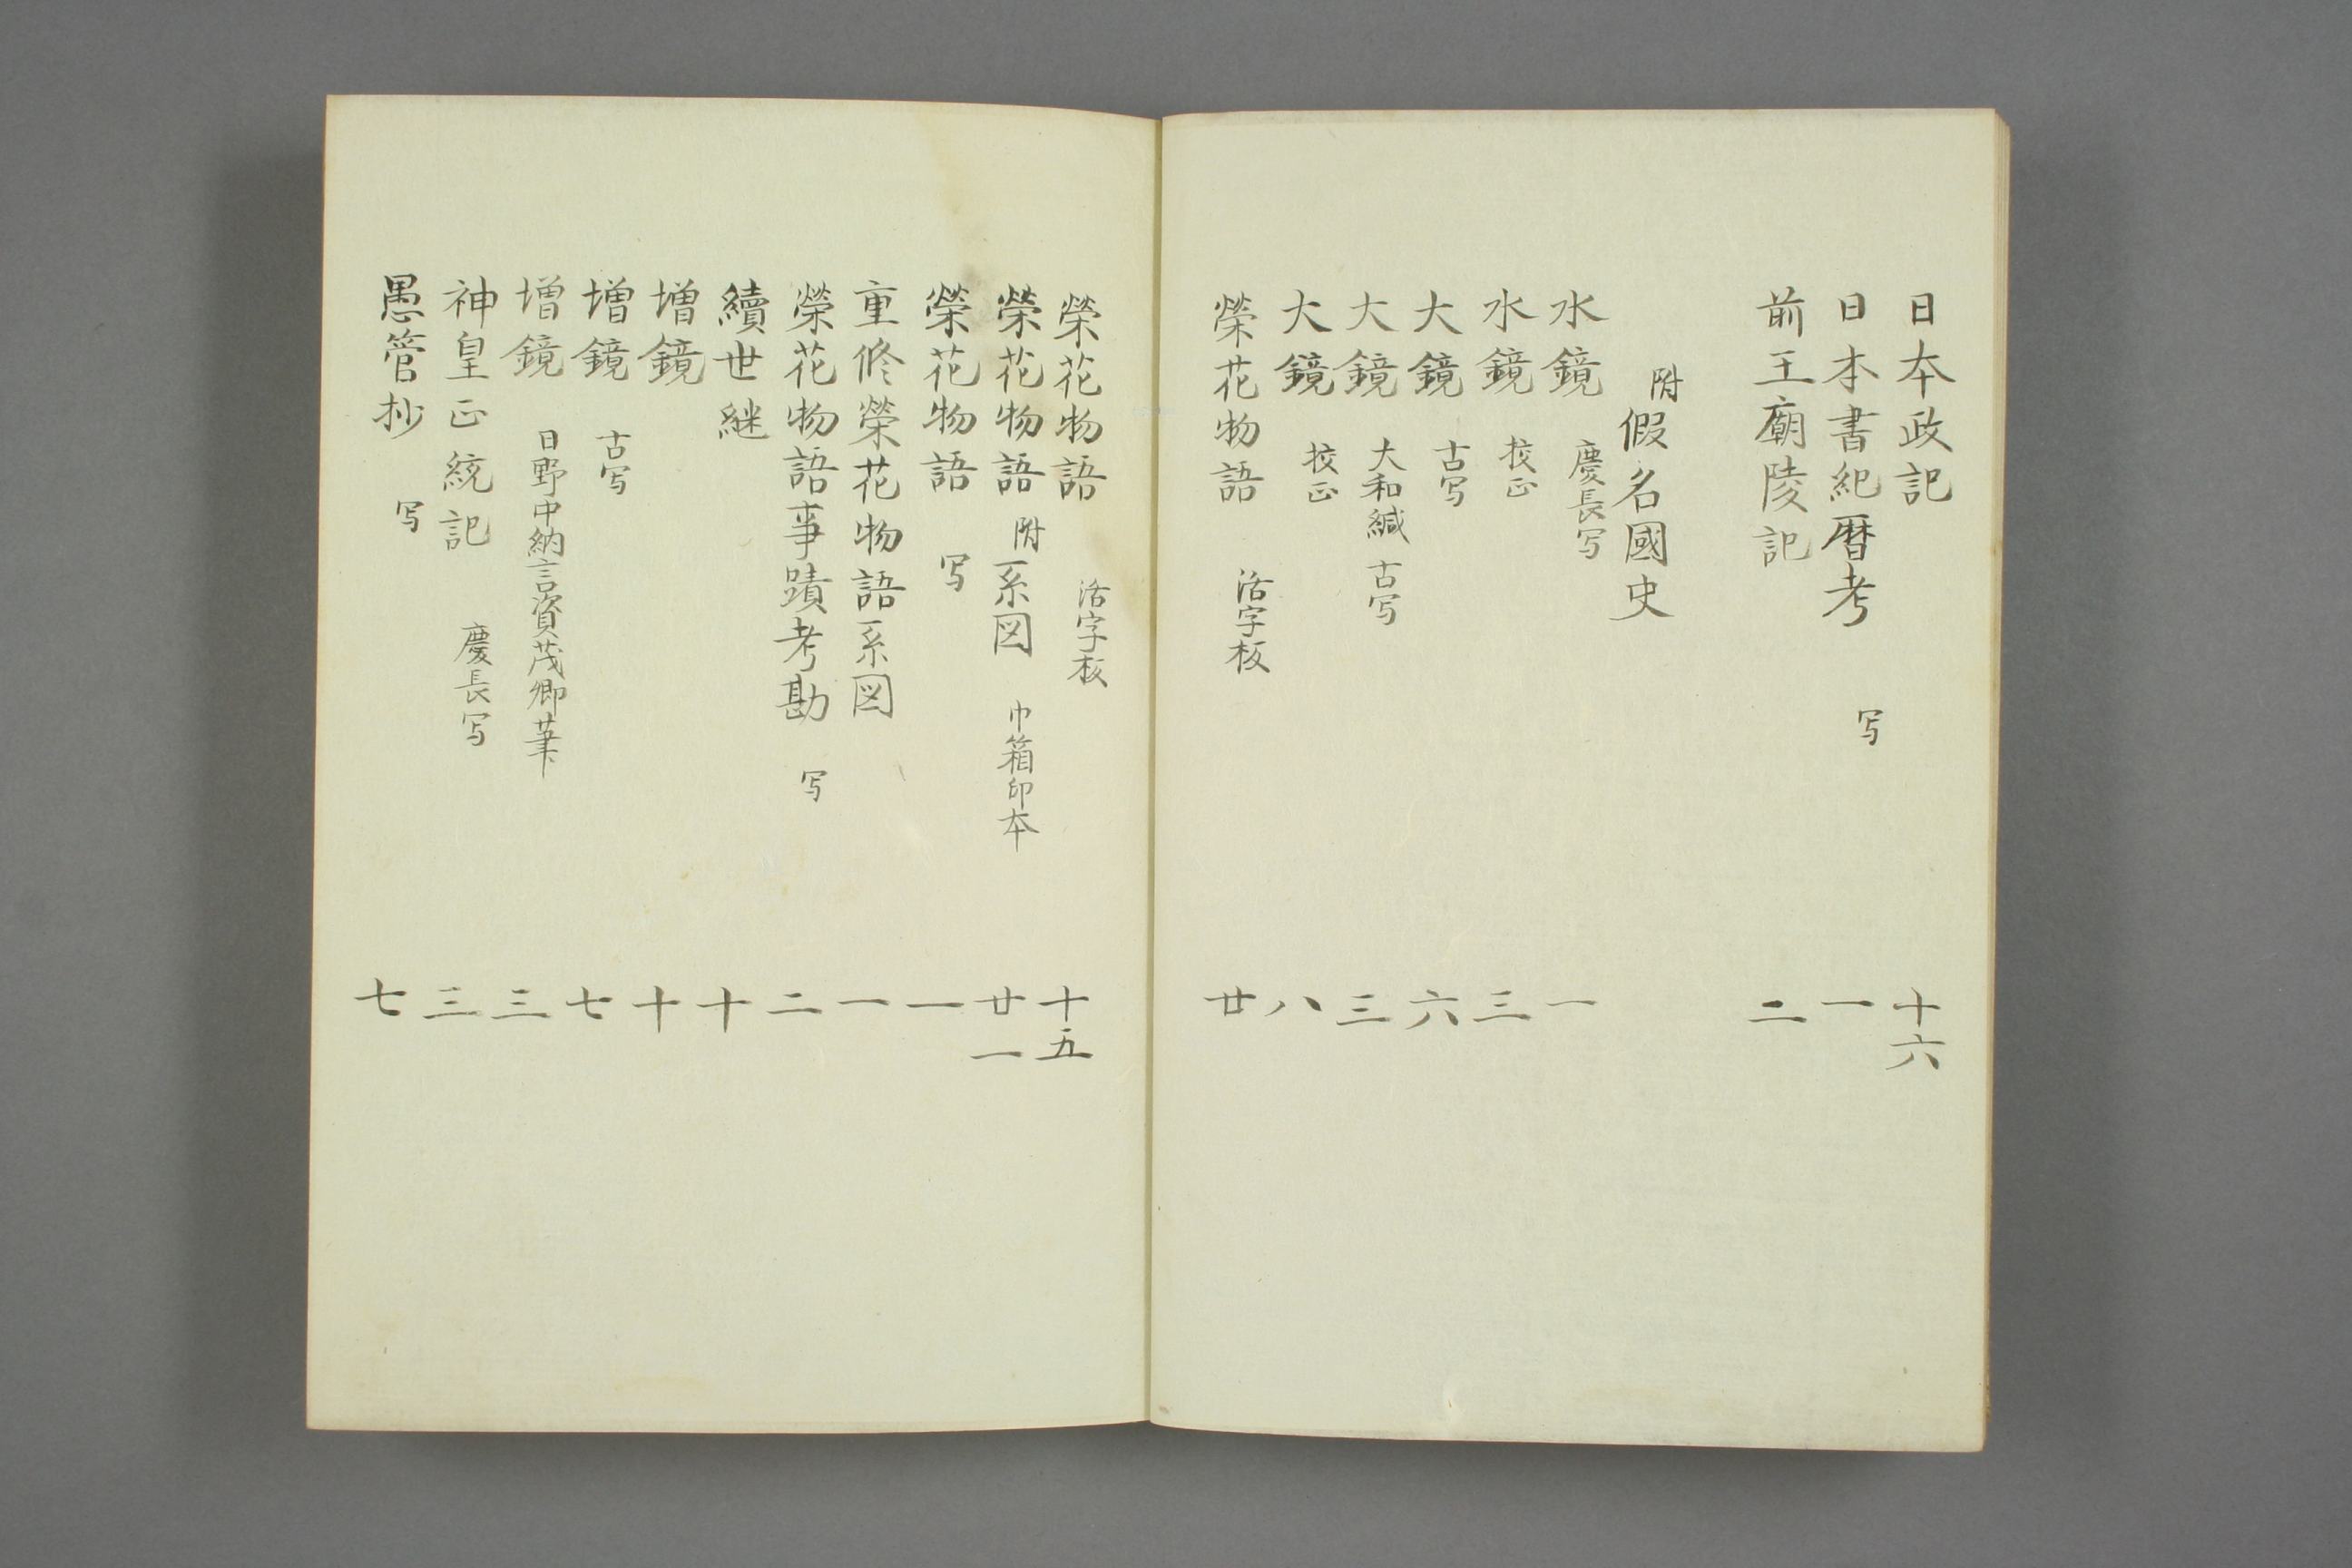 日本政記 十六
日本書紀暦考 写 一
前王廟陵記 二
附 假名國史
水鏡 慶長写 一
水鏡 挍正 三
大鏡 古写 六
大鏡 大和綴 古写 三
大鏡 挍正 八
榮花物語 活字板 廿
榮花物語 活字板 十五
榮花物語 附系図 巾箱印本 廿一
榮花物語 写 一
重修榮花物語系図 一
榮花物語事蹟考勘 写 二
續世継 十
増鏡 十
増鏡 古写 七
増鏡 日野中納言資茂卿筆 三
神皇正統記 慶長写 三
愚管抄 写 七